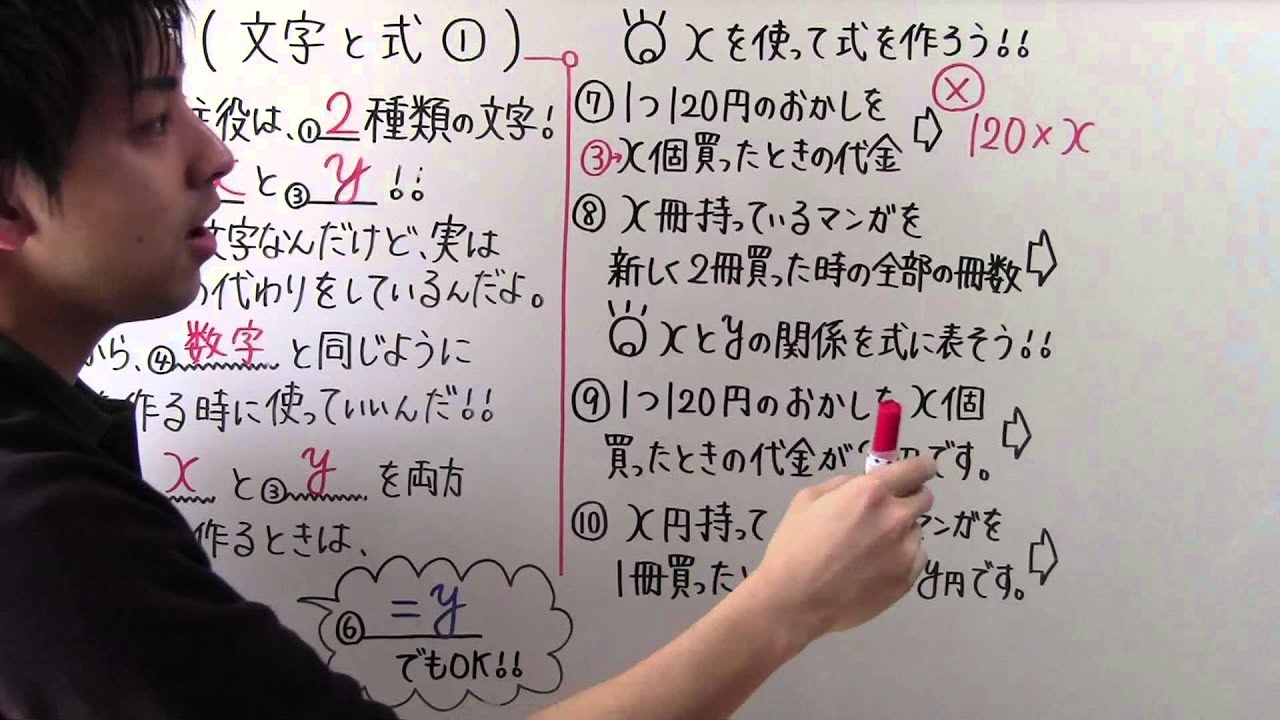 (文字と式①)
主役は、①2種類の文字!
xと③y!!
文字なんだけど、実は
代わりをしているんだよ。
から、④数字と同じように
作る時に使っていいんだ!!
xと③yを両方
作るときは、
⑥=y
でもOK!!
xを使って式を作ろう!!
⑦1つ120円のおかしを
③→x個買ったときの代金⇨
×
120×x
⑧x冊持っているマンガを
新しく2冊買った時の全部の冊数⇨
xとyの関係を式に表そう!!
⑨1つ120円のおかしをx個
買ったときの代金が です。⇨
⑩x円持って マンガを
1冊買ったと y円です。⇨